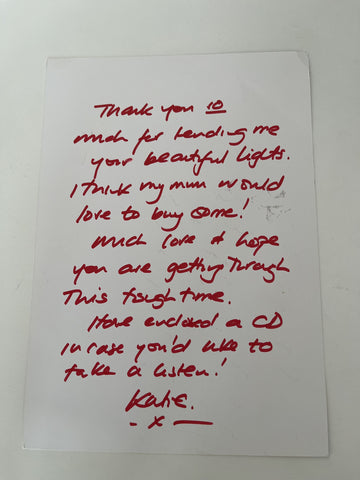 Thank you so
much for lending me
your beautiful lights.
I think my mum would
love to buy some!
Much love & hope
you are getting through
this tough time.
Have enclosed a CD
in case you'd like to
take a listen!
Katie.
- x —